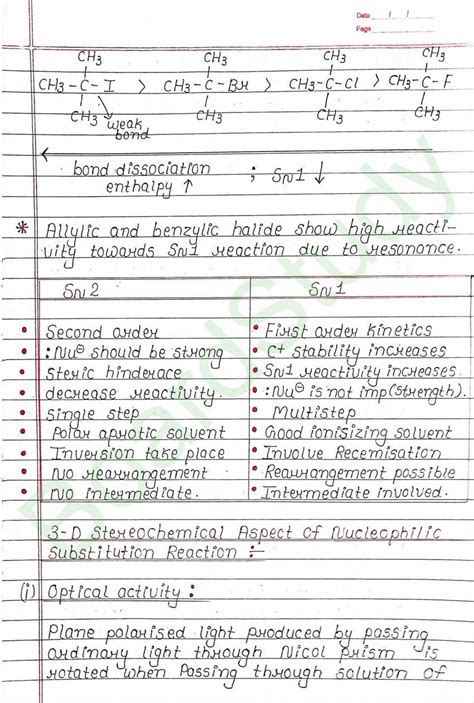 Date / /
Page
CH3 CH3 CH3 CH3
CH3-C-I > CH3-C-Br > CH3-C-Cl > CH3-C-F
CH3 CH3 CH3 CH3
weak
bond
bond dissociation
enthalpy ↑ ; SN1 ↓
* Allylic and benzylic halide show high reacti-
vity towards SN1 reaction due to resonance.
SN2 SN1
• Second order • First order kinetics
• :Nu⊖ should be strong • C+ stability increases
• Steric hinderace • SN1 reactivity increases
• decrease reactivity. • :Nu⊖ is not imp(Strength).
• Single step • Multistep
• Polar aprotic solvent • Good ionisizing solvent
• Inversion take place • Involve Recemisation
• No rearrangement • Rearrangement possible
• No intermediate. • Intermediate involved.
3-D Stereochemical Aspect of Nucleophilic
Substitution Reaction :-
(i) Optical activity :
Plane polarised light produced by passing
ordinary light through Nicol prism is
rotated when Passing through solution of
BoardStudy